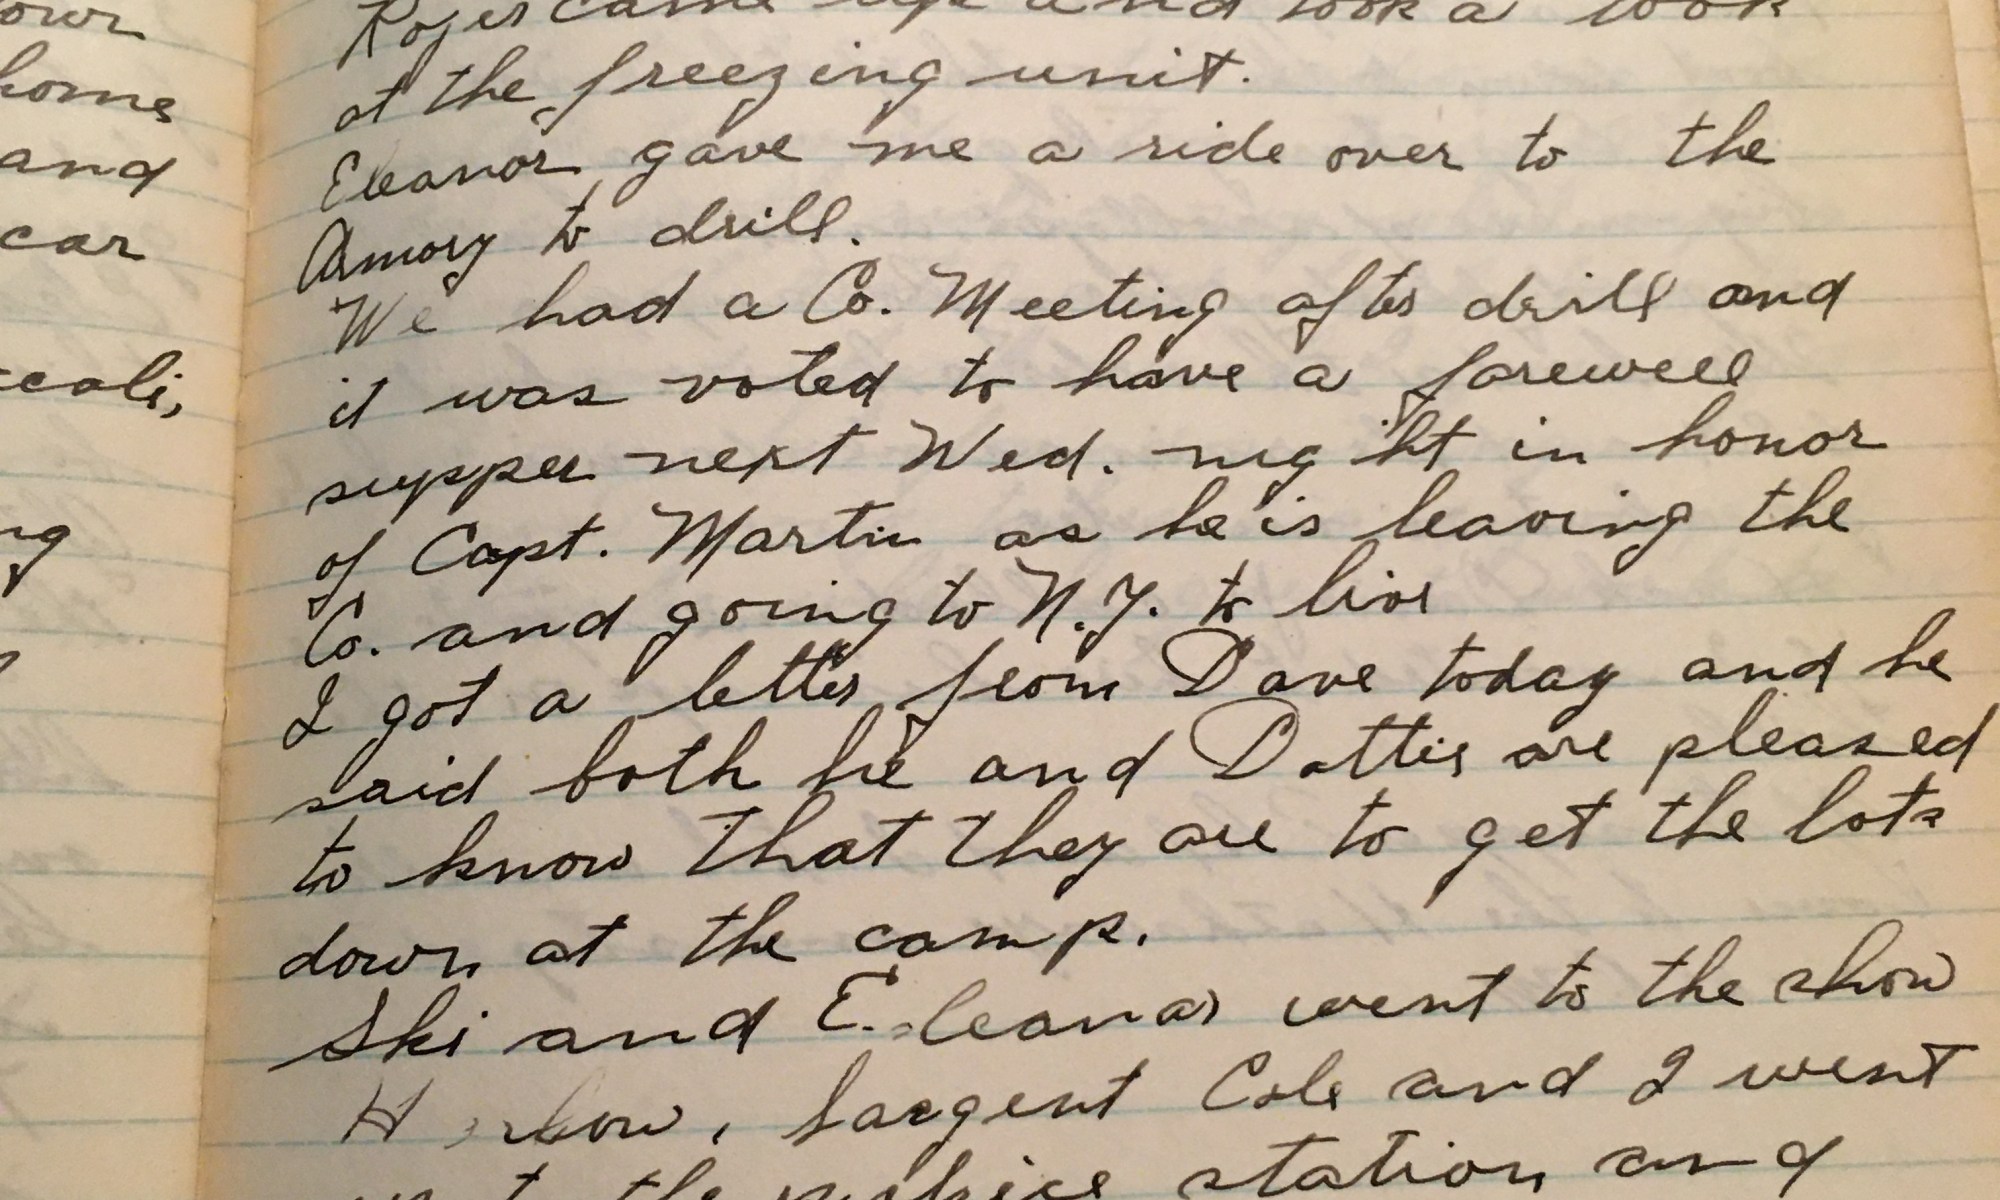 own
home
and
car
came up and took a look
at the freezing unit.
Eleanor gave me a ride over to the
Armory to drill.
We had a Co. Meeting after drill and
it was voted to have a farewell
supper next Wed. night in honor
of Capt. Martin as he is leaving the
Co. and going to N.Y. to live
I got a letter from Dave today and he
said both he and Dottie are pleased
to know that they are to get the lots
down at the camp.
Ski and Eleanor went to the show
Sargent Cole and I went
the police station and